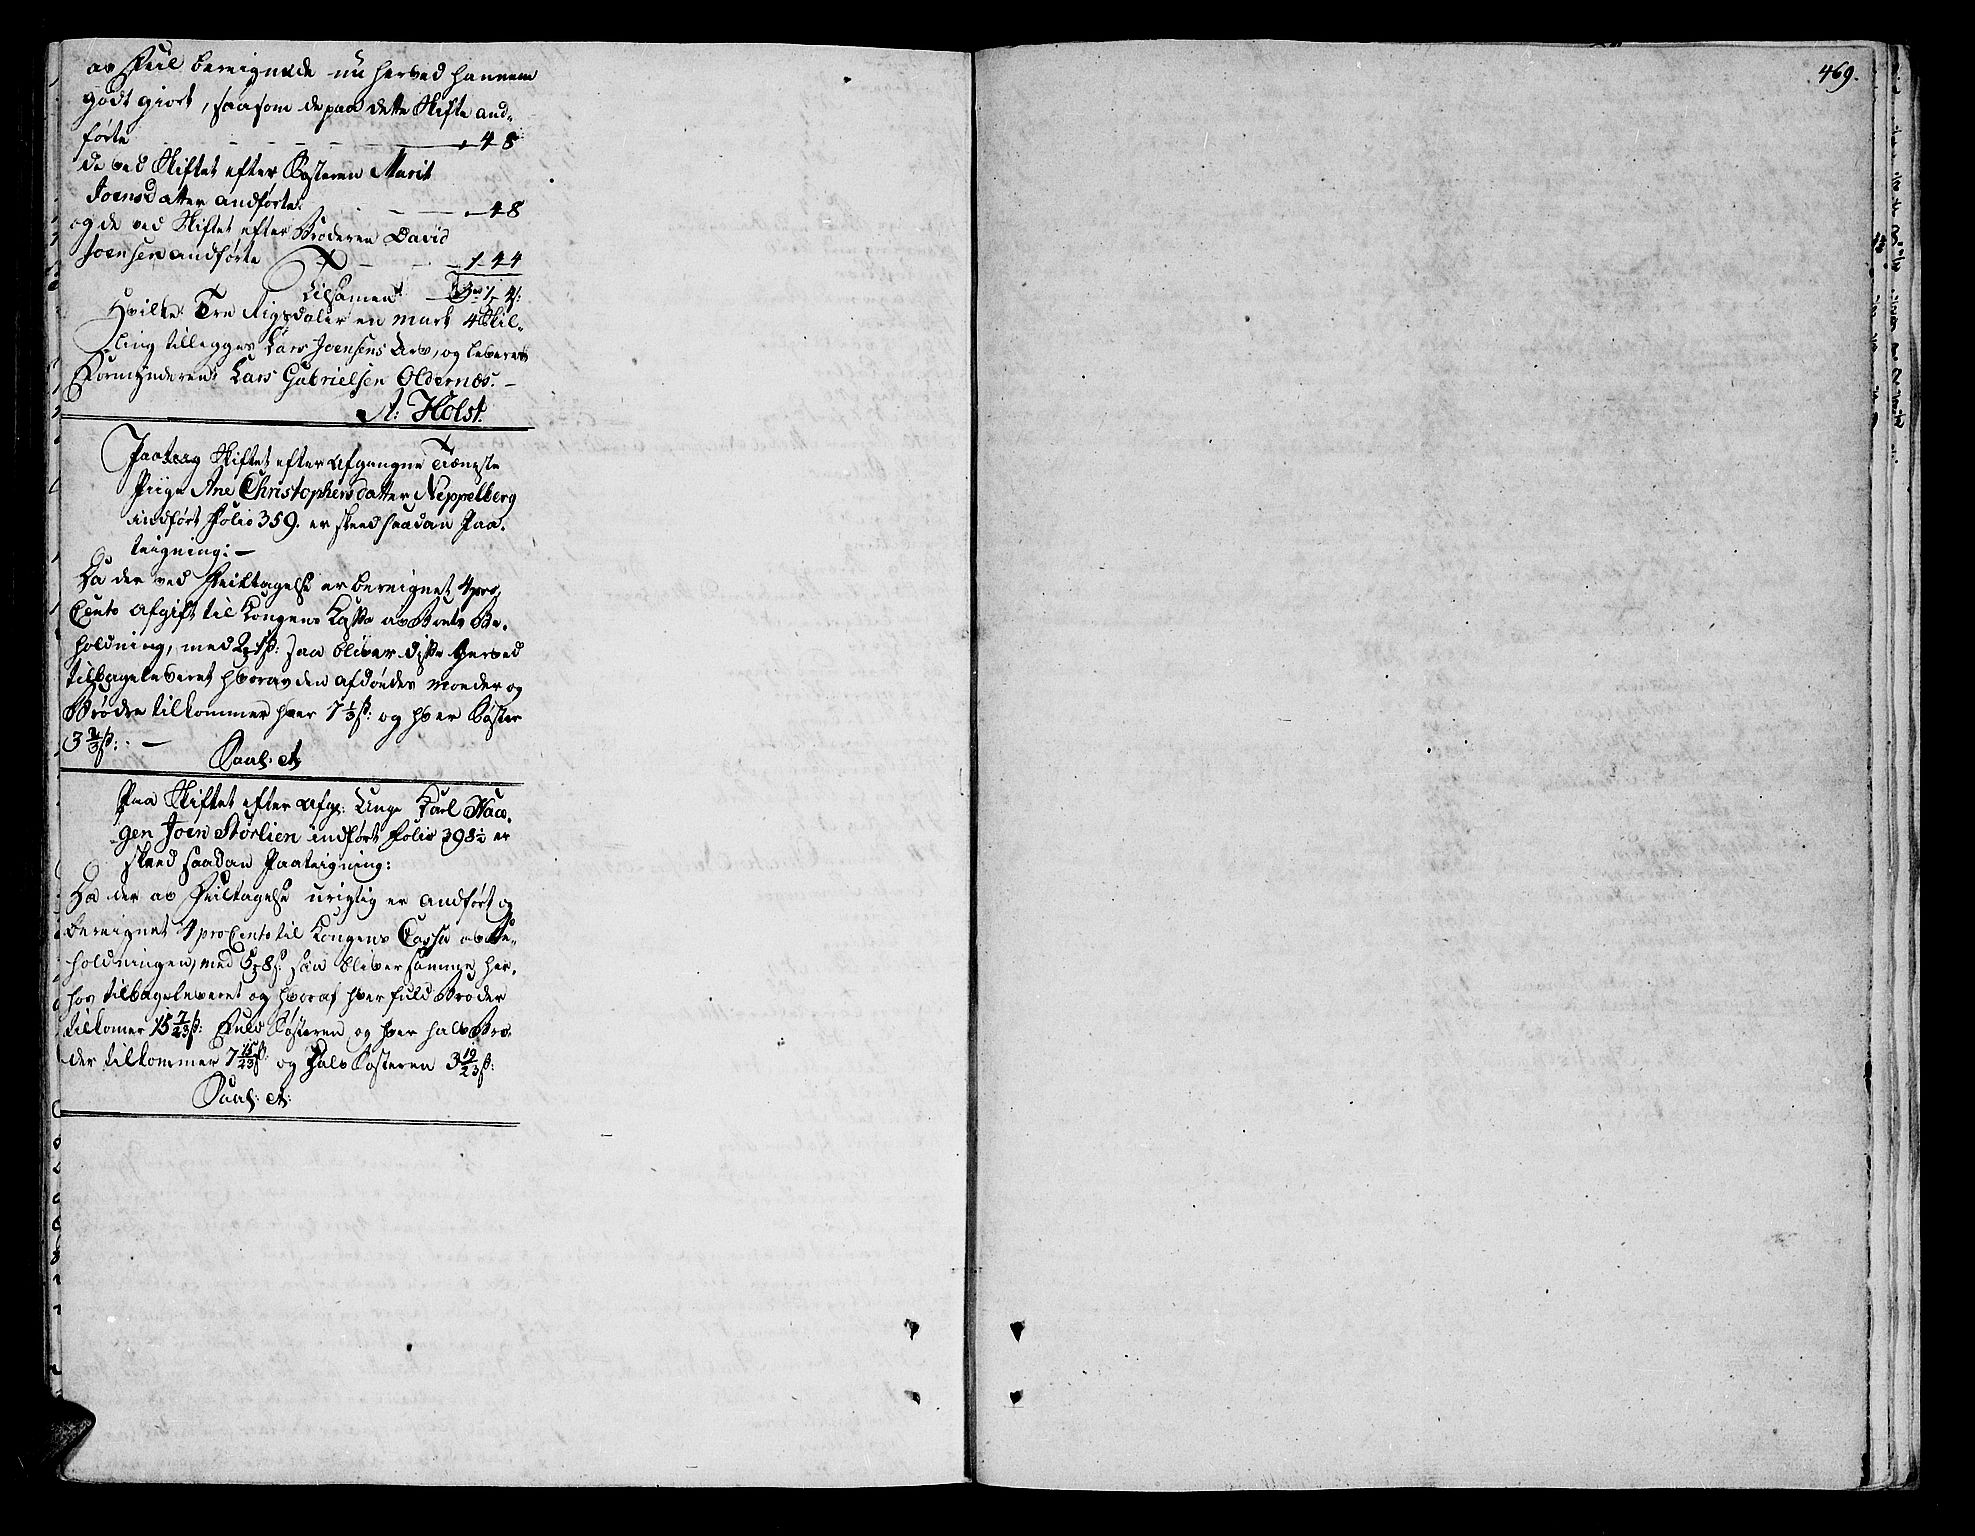 av Feil beregnede nu herved hannem
godt giort, saasom de paa dette Skifte and-
førte - - - - - - 48
de ved Skiftet efter Søsteren Marit
Joensdatter andførte - - - 48
og de ved Skiftet efter Broderen David
Joensen andførte - - - 1 - 44
Tilsamen - 3 - 1 - 4 s:
Hvilke Tre Rigsdaler en mark 4 Skil-
ling tillegges Lars Joensens Arv, og leveres
Formynderen Lars Gabrielsen Oldernæs. -
A: Holst.
Skiftet efter Afgangne Tieneste
Piige Ane Christophersdatter Neppelberg
indført Folio 359. er skeed saadan Paa-
teigning: -
Da der ved Feiltagelse er beregnet 4 pro
Cento Afgift til Kongens Kassa av Boets Be-
holdning, med saa bliver disse herved
tilbageleveret hvorav den afdødes Moder og
Brødre tilkommer hver 7 1/3 s: og hver Søster
3 2/3 s: . -
Paa Skiftet efter Afg: Unge Karl Haa-
gen Joen Størlien indført Folio 398 1/2 er
skeed saadan Paateigning:
Da der av Feiltagelse urigtig er andført og
beregnet 4 pro Cento til Kongens Cassa av Be-
holdningen, med saa bliver samme her-
hos tilbageleveret og hvoraf hver fuld Broder
tilkomer 15 7/23 s: Fuld Søsteren og hver halv Bro-
der tilkommer 7 15/23 s: og Halv Søsteren 3 19/23 s:
469.